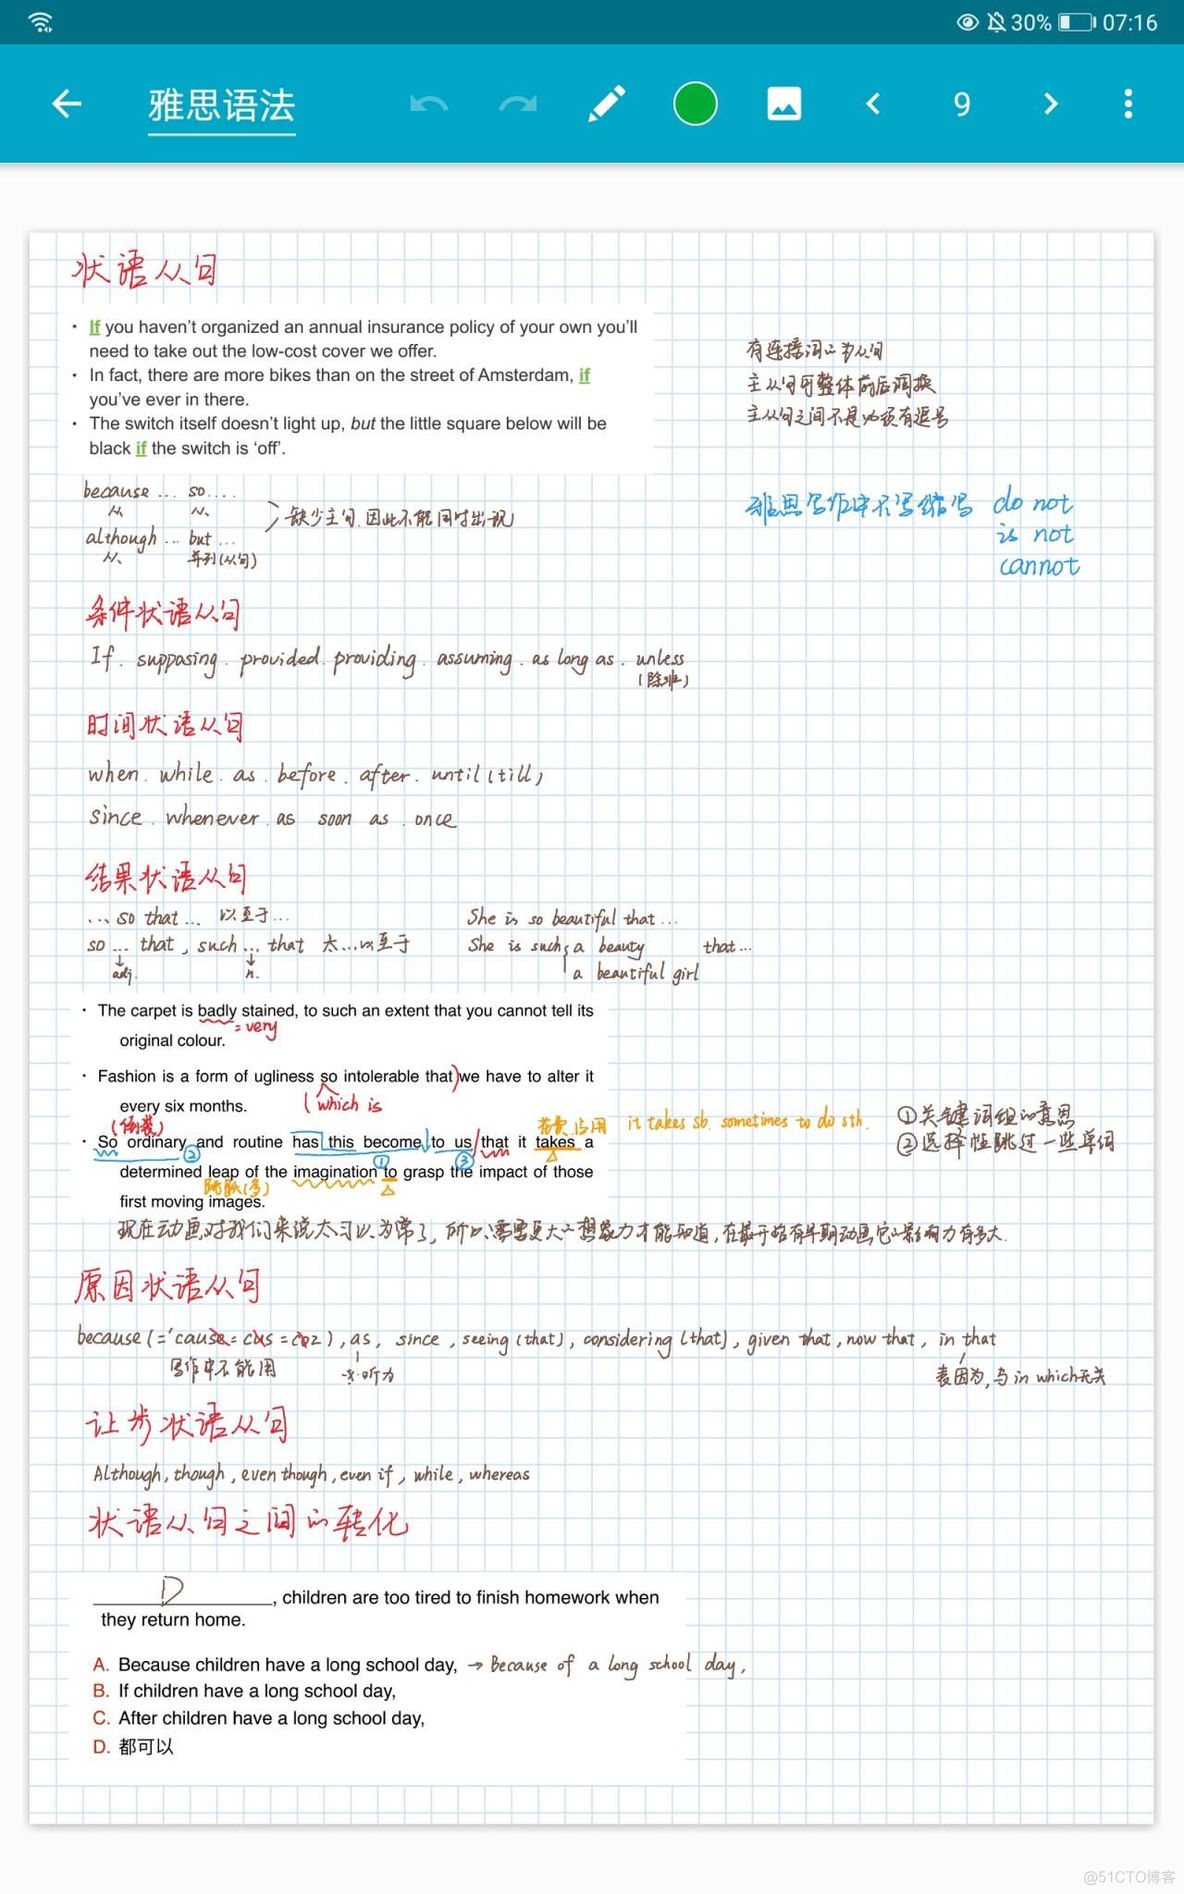 30% 07:16
雅思语法
9
状语从句
· If you haven't organized an annual insurance policy of your own you'll
need to take out the low-cost cover we offer.
· In fact, there are more bikes than on the street of Amsterdam, if
you've ever in there.
· The switch itself doesn't light up, but the little square below will be
black if the switch is 'off'.
有连接词的为从句
主从句可整体前后调换
主从句之间不是必须有逗号
because ... so ....
从 从
although ... but ...
从 并列(从句)
缺少主句.因此不能同时出现
雅思写作中不写缩写 do not
is not
cannot
条件状语从句
If . supposing . provided . providing . assuming . as long as . unless
(除非)
时间状语从句
when . while . as . before . after . until (till)
since . whenever . as soon as . once
结果状语从句
... so that ... 以至于...
so ... that , such ... that 太...以至于
adj. n.
She is so beautiful that ...
She is such a beauty that ...
a beautiful girl
· The carpet is badly stained, to such an extent that you cannot tell its
= very
original colour.
· Fashion is a form of ugliness so intolerable that we have to alter it
(which is
every six months.
(倒装)
花费,占用 it takes sb. sometimes to do sth.
· So ordinary and routine has this become to us that it takes a
② ① ③
determined leap of the imagination to grasp the impact of those
first moving images.
①关键词组的意思
②选择性跳过一些单词
现在动画对我们来说太习以为常了, 所以需要更大的想象力才能知道,在最开始有早期动画它的影响力有多大.
原因状语从句
because (= 'cause = cus = coz ) , as , since , seeing (that) , considering (that) , given that , now that , in that
写作中不能用
表因为,与 in which无关
让步状语从句
Although, though , even though , even if , while , whereas
状语从句之间的转化
D , children are too tired to finish homework when
they return home.
A. Because children have a long school day, → Because of a long school day,
B. If children have a long school day,
C. After children have a long school day,
D. 都可以
@51CTO博客